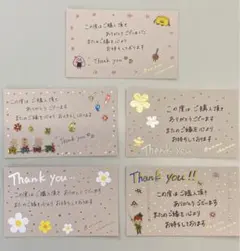 この度はご購入頂き
ありがとうございました
またのご縁を心より
お待ちしております
Thank you
この度はご購入頂き
ありがとうございます
またのご縁を心より
お待ちしております
Thank you
この度はご購入頂き
ありがとうございます
またのご縁を心より
お待ちしております
Thank you
この度はご購入頂き
ありがとうございます
またのご縁を心より
お待ちしております
Thank you!!
この度はご購入頂き
ありがとうございます
またのご縁を心より
お待ちしております